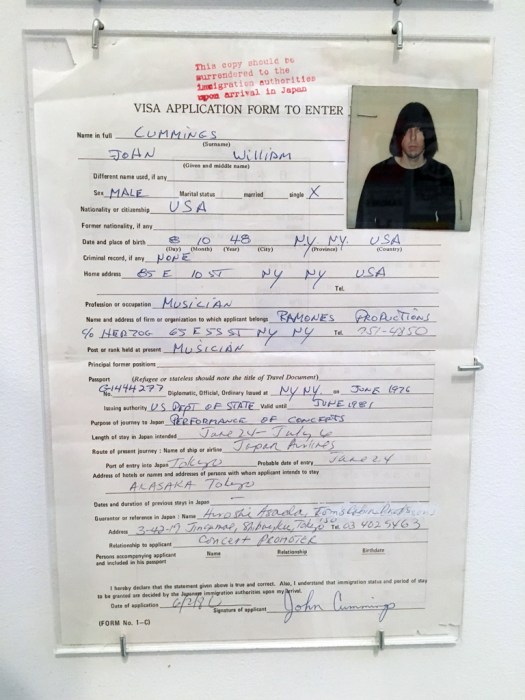 This copy should be
surrendered to the
immigration authorities
upon arrival in Japan
VISA APPLICATION FORM TO ENTER
Name in full CUMMINGS
(Surname)
JOHN WILLIAM
(Given and middle name)
Different name used, if any
Sex MALE Marital status married single X
Nationality or citizenship USA
Former nationality, if any
Date and place of birth 8 10 48 NY. NY. USA
(Day) (Month) (Year) (City) (Province) (Country)
Criminal record, if any NONE
Home address 85 E 10 ST NY NY USA
Tel.
Profession or occupation MUSICIAN
Name and address of firm or organization to which applicant belongs RAMONES PRODUCTIONS
c/o HERZOG 65 E 55 ST NY NY Tel. 751-4850
Post or rank held at present MUSICIAN
Principal former positions
Passport (Refugee or stateless should note the title of Travel Document)
No. Diplomatic, Official, Ordinary Issued at NY NY on JUNE 1976
Issuing authority US DEPT OF STATE Valid until JUNE 1981
Purpose of journey to Japan PERFORMANCE OF CONCERTS
Length of stay in Japan intended June 24 - July 6
Route of present journey : Name of ship or airline Japan Airlines
Port of entry into Japan Tokyo Probable date of entry June 24
Address of hotels or names and addresses of persons with whom applicant intends to stay
ALASAKA Tokyo
Dates and duration of previous stays in Japan —
Guarantor or reference in Japan : Name Hiroshi Asada,
Address 3-42-17 Jingumae, Shibuyaku, Tokyo Tel. 03 402 5463
Relationship to applicant CONCERT PROMOTER
Persons accompanying applicant Name Relationship Birthdate
and included in his passport
I hereby declare that the statement given above is true and correct. Also, I understand that immigration status and period of stay
to be granted are decided by the Japanese immigration authorities upon my arrival.
Date of application Signature of applicant John Cummings
(FORM No. 1-C)